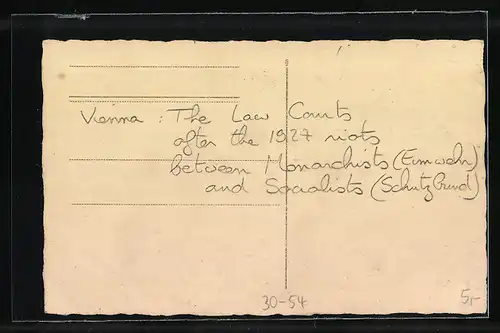 Vienna : The Law Courts
after the 1927 riots
between Monarchists (Eimwehr)
and Socialists (Schutzbund)
30-54
5,-